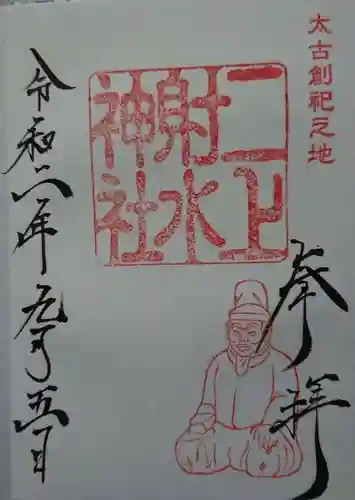 太古創祀之地
奉拝
二上
射水
神社
令和二年九月五日